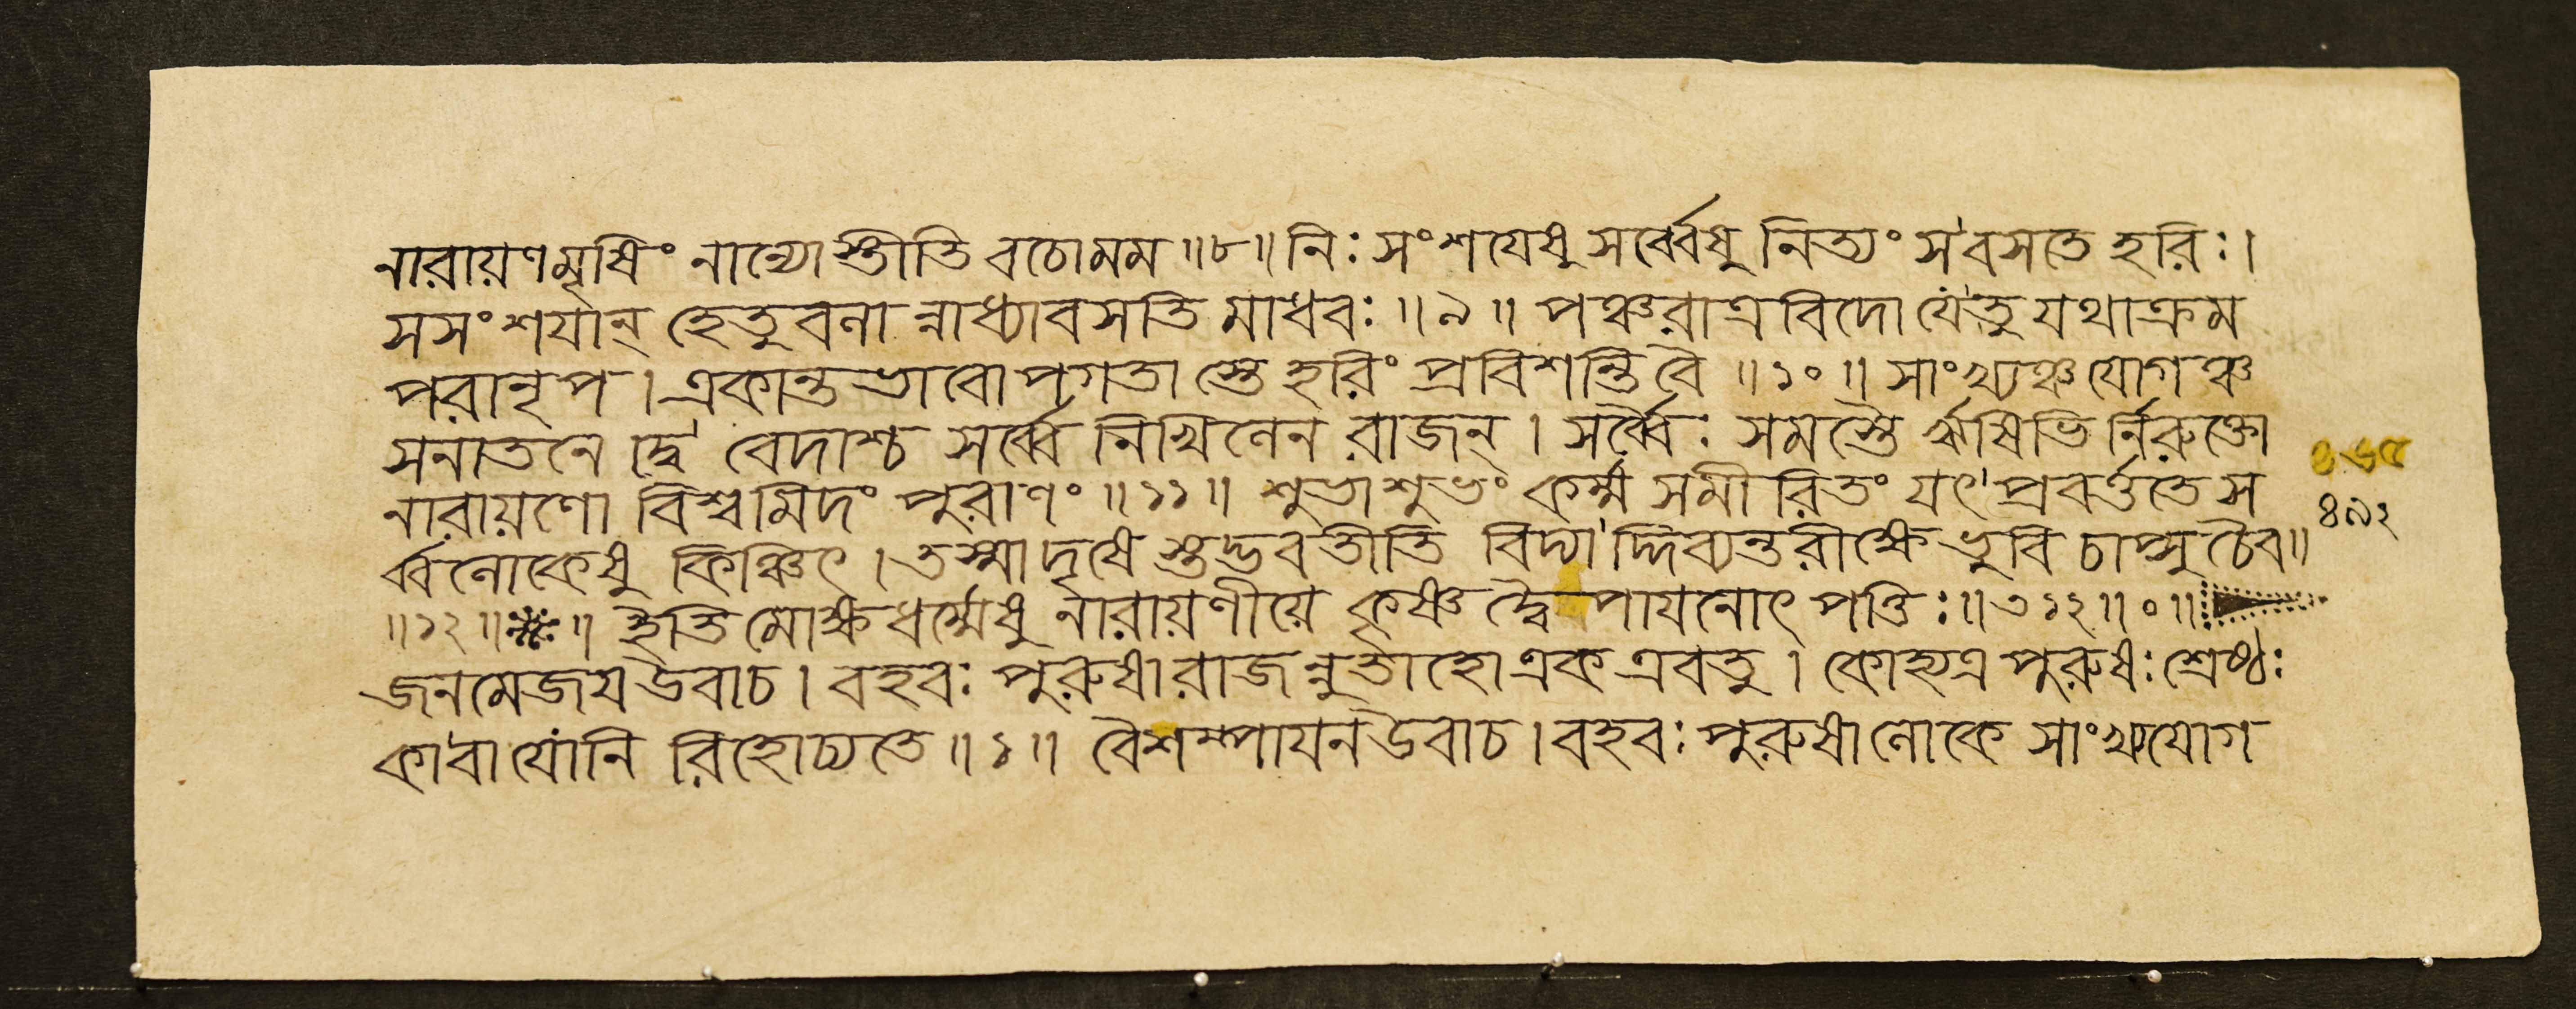 নারায়ণমৃষিং নান্যোস্তীতি বচোমম ॥৮॥ নিঃসংশযেষু সর্ব্বেষু নিত্যং সবসতে হরিঃ।
সসংশযান্ হেতুবলা ন্নাধ্যাবসতি মাধবঃ ॥৯॥ পঞ্চরাত্রবিদো যেতু যথাক্রম
পরানৃপ। একান্তভাবোপগতা স্তে হরিং প্রবিশন্তিবৈ ॥১০॥ সাংখ্যঞ্চ যোগঞ্চ
সনাতনে দ্বে বেদাশ্চ সর্ব্বে নিখিলেন রাজন্। সর্ব্বৈঃ সমস্তৈ র্ঋষিভি র্নিরুক্তো
নারায়ণো বিশ্বমিদং পুরাণং ॥১১॥ শুভাশুভং কর্ম্ম সমীরিতং যৎ প্রবর্ত্ততে স
র্ব্বলোকেষু কিঞ্চিৎ। তস্মাদৃষে স্তদ্ভবতীতি বিদ্যাদ্দিব্যন্তরীক্ষে ভুবি চাপ্সুচৈব॥
॥১২॥ ॥ ইতি মোক্ষধর্ম্মেষু নারায়ণীয়ে কৃষ্ণদ্বৈপাযনোৎপত্তিঃ॥৩১২॥০॥
জনমেজয উবাচ। বহবঃ পুরুষা রাজন্নুতাহো এক এবতু। কোহ্যত্র পুরুষঃ শ্রেষ্ঠঃ
কাবা যোনি রিহোচ্যতে ॥১॥ বৈশম্পাযন উবাচ। বহবঃ পুরুষা লোকে সাংখ্যযোগ
৪৯২